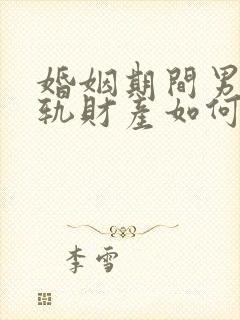 婚姻期間男
軌財產如何
李雪